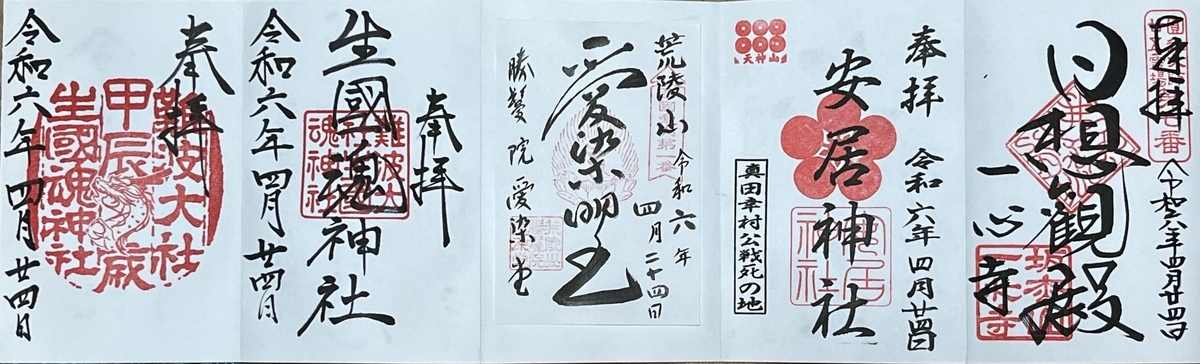 奉拝
日想観殿
一心寺
令和六年四月廿四日
天神山
奉拝
令和六年四月廿四日
安居神社
真田幸村公戦死の地
荒陵山
令和六年
四月二十四日
愛染明王
勝鬘院愛染堂
奉拝
生國魂神社
令和六年四月廿四日
奉拝
難波大社
甲辰歳
生國魂神社
令和六年四月廿四日